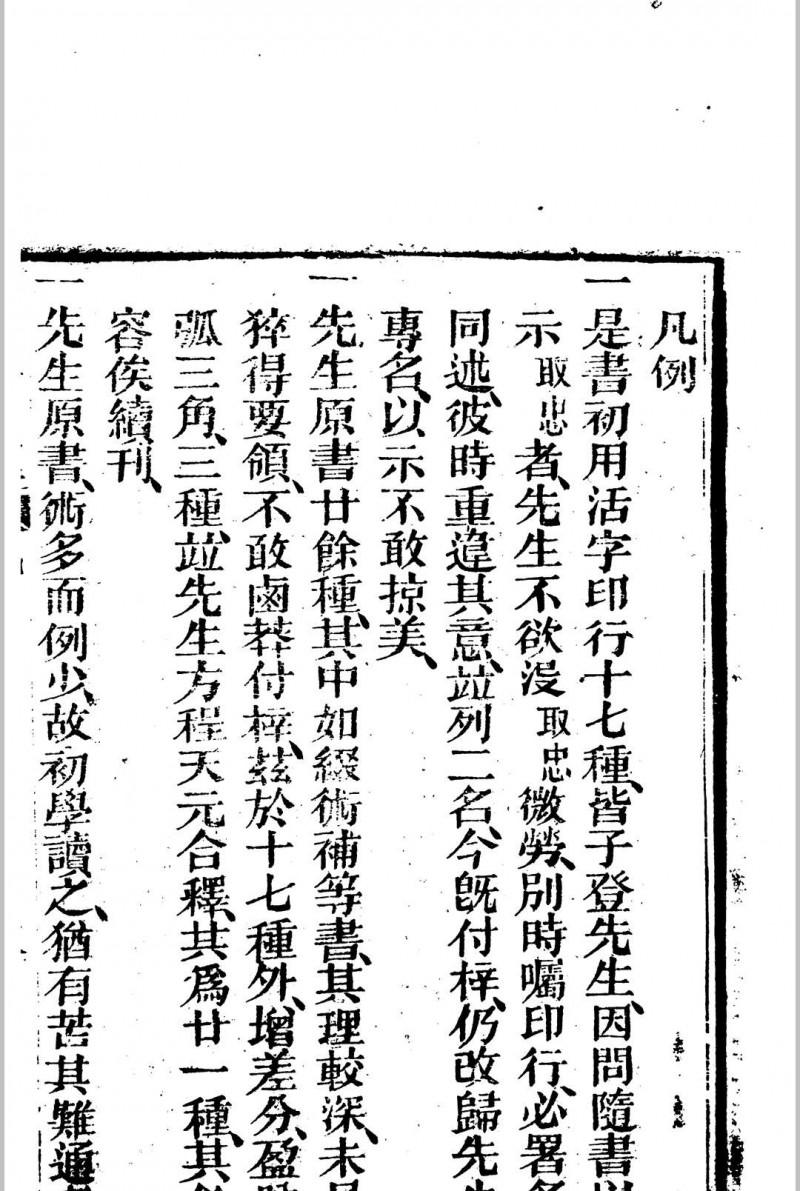 凡例
一是書初用活字印行十七種、皆子登先生、因問隨書以
示取忠者、先生不欲沒取忠微勞、別時囑印行、必署名
同述、彼時重違其意、竝列二名、今既付梓、仍改歸先生
專名、以示不敢掠美、
一先生原書廿餘種、其中如綴術補等書、其理較深、未易
猝得要領、不敢鹵莽付梓、茲於十七種外、增差分、盈
弧三角、三種、竝先生方程天元合釋、共為廿一種、其餘
容俟續刊、
一先生原書、術多而例少、故初學讀之、猶有苦其難通